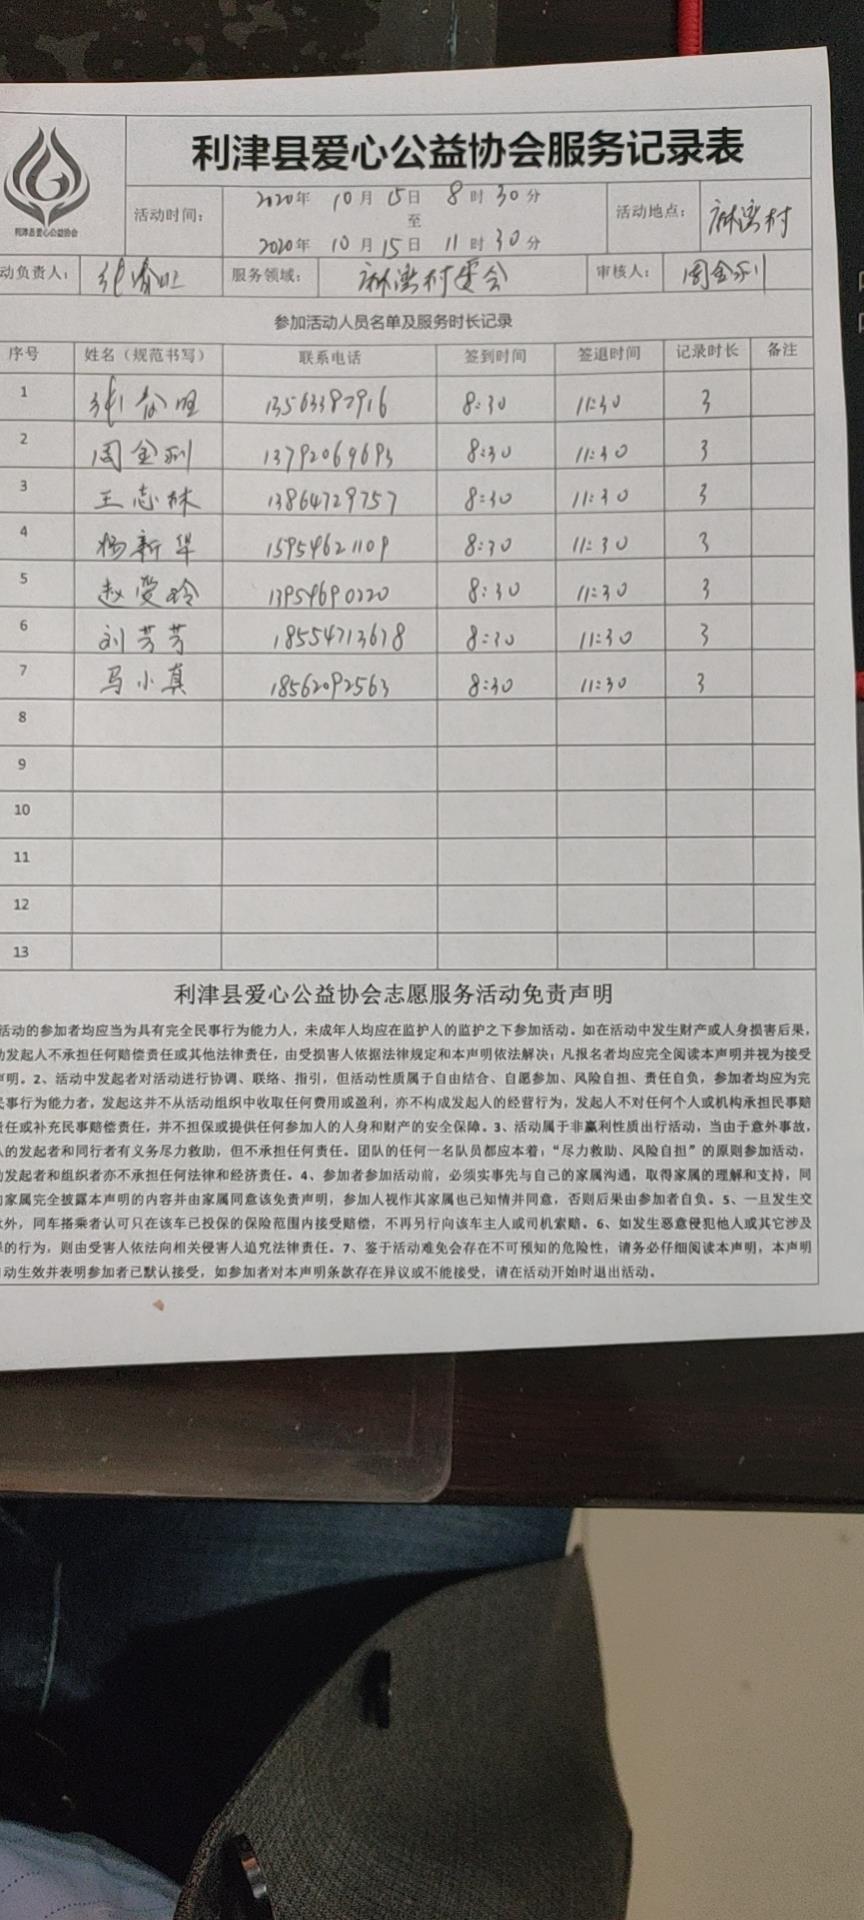 利津县爱心公益协会服务记录表
利津县爱心公益协会
活动时间： 2020年 10月 15日 8时 30分 活动地点：
至
2020年 10月 15日 11时 30分
动负责人： 服务领域： 村委会 审核人： 周金利
参加活动人员名单及服务时长记录
序号 姓名（规范书写） 联系电话 签到时间 签退时间 记录时长 备注
1 8:30 11:30 3
2 周金利 13792069693 8:30 11:30 3
3 王志林 13864729757 8:30 11:30 3
4 杨新华 15954621109 8:30 11:30 3
5 赵爱玲 13954690220 8:30 11:30 3
6 刘芳芳 18554713678 8:30 11:30 3
7 马小真 18562092563 8:30 11:30 3
8
9
10
11
12
13
利津县爱心公益协会志愿服务活动免责声明
活动的参加者均应当为具有完全民事行为能力人，未成年人均应在监护人的监护之下参加活动。如在活动中发生财产或人身损害后果，
动发起人不承担任何赔偿责任或其他法律责任，由受损害人依据法律规定和本声明依法解决；凡报名者均应完全阅读本声明并视为接受
声明。2、活动中发起者对活动进行协调、联络、指引，但活动性质属于自由结合、自愿参加、风险自担、责任自负，参加者均应为完
民事行为能力者，发起这并不从活动组织中收取任何费用或盈利，亦不构成发起人的经营行为，发起人不对任何个人或机构承担民事赔
责任或补充民事赔偿责任，并不担保或提供任何参加人的人身和财产的安全保障。3、活动属于非赢利性质出行活动，当由于意外事故，
人的发起者和同行者有义务尽力救助，但不承担任何责任。团队的任何一名队员都应本着：“尽力救助、风险自担”的原则参加活动，
动发起者和组织者亦不承担任何法律和经济责任。4、参加者参加活动前，必须实事先与自己的家属沟通，取得家属的理解和支持，同
向家属完全披露本声明的内容并由家属同意该免责声明，参加人视作其家属也已知情并同意，否则后果由参加者自负。5、一旦发生交
意外，同车搭乘者认可只在该车已投保的保险范围内接受赔偿，不再另行向该车主人或司机索赔。6、如发生恶意侵犯他人或其它涉及
的行为，则由受害人依法向相关侵害人追究法律责任。7、鉴于活动难免会存在不可预知的危险性，请务必仔细阅读本声明，本声明
自动生效并表明参加者已默认接受，如参加者对本声明条款存在异议或不能接受，请在活动开始时退出活动。